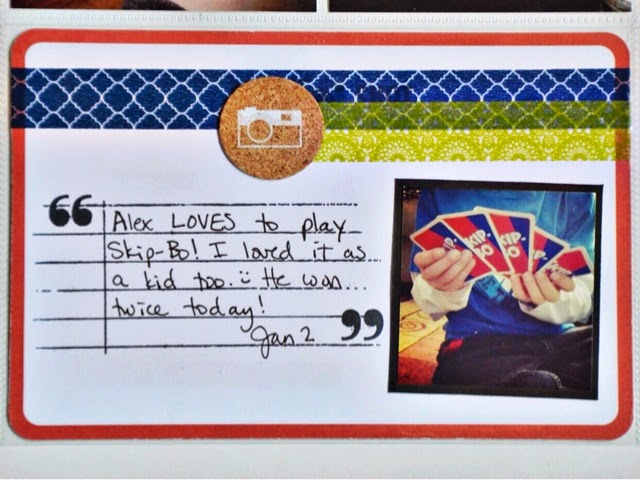 “
Alex LOVES to play
Skip-Bo! I loved it as
a kid too. :) He won
twice today!
Jan 2
”
SKIP-
SKIP-
BO
KIP-
BO